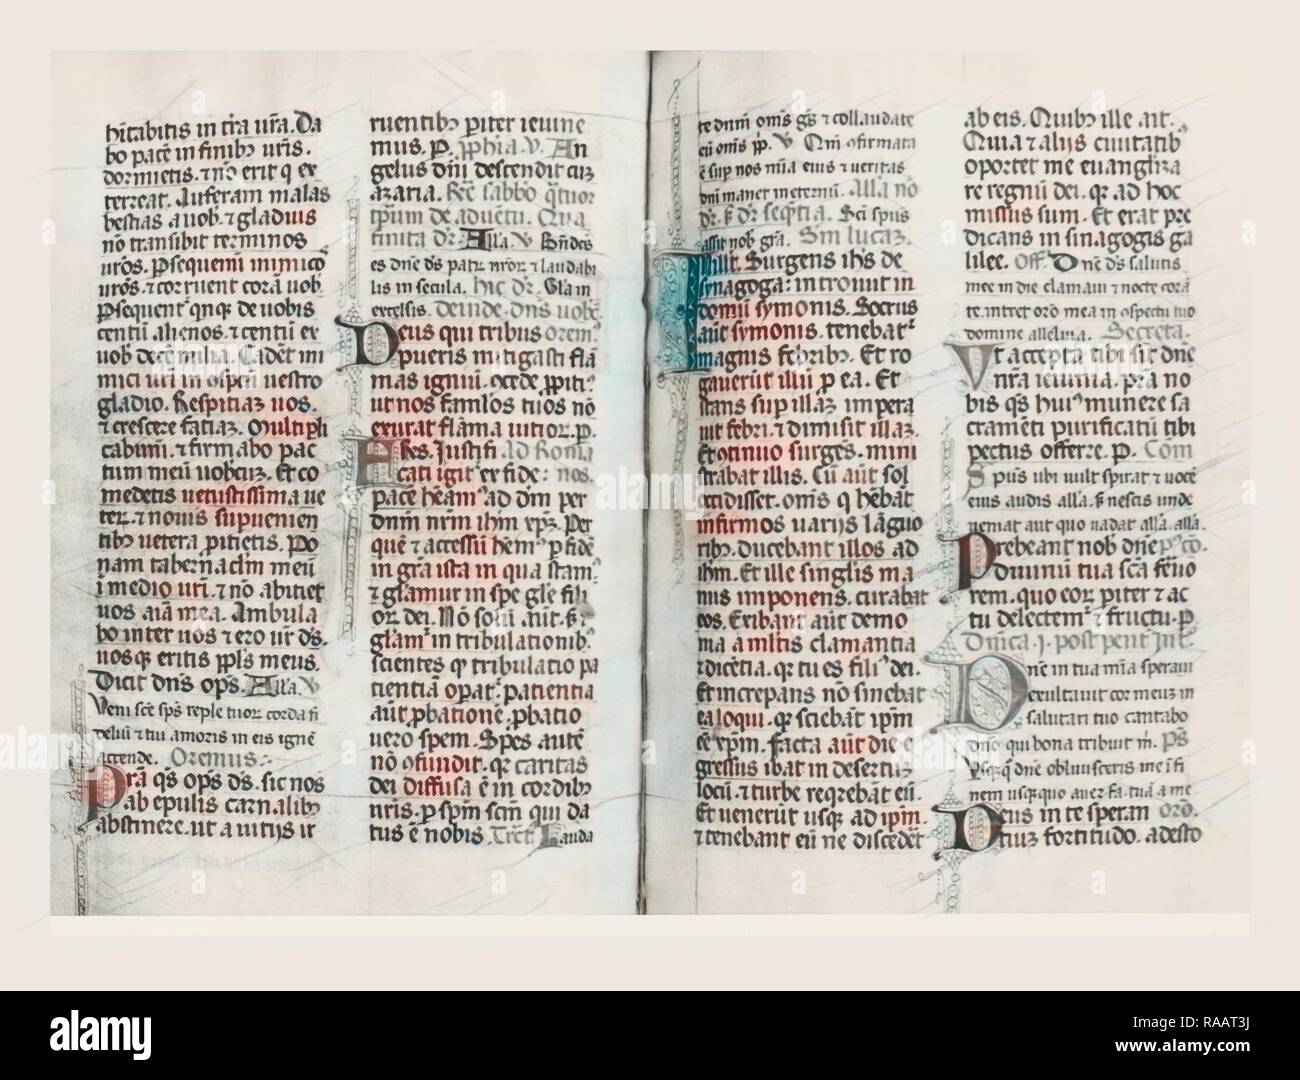 hītabitis in tr̄a ur̄a. Da
bo pacē in finibꝫ ur̄is.
dormietis. ⁊ nō erit q̇ ex
terreat. Auferam malas
bestias a uob. ⁊ gladius
nō transibit terminos
ur̄os. Psequemī inimicos
ur̄os. ⁊ corruent corā uob.
Psequent̉ qnqꝫ de uobis
centū alienos. ⁊ centū ex
uob decē milia. Cadēt ini
mici ur̄i in ꝯspcū uestro
gladio. Respiciaꝫ uos.
⁊ crescere faciaꝫ. Multipli
cabimī. ⁊ firmabo pac
tum meū uobcuꝫ. Et co
medetis uetustissima ue
ter. ⁊ nouis supuenien
tibꝫ uetera ꝓicietis. Po
nam tabernaclm̄ meū
ī medio ur̄i. ⁊ nō abiciet
uos aīa mea. Ambula
bo inter uos ⁊ ero ur̄ ds̄.
uosqꝫ eritis ppl̄s meus.
Dicit dn̄s ops. Alla. V
Veni sc̄e sps̄ reple tuor̄ corda fi
deliū ⁊ tui amoris in eis ignē
accende. Oremus.
Pra q̄s ops̄ ds̄. sic nos
ab epulis carnalibꝫ
abstinere. ut a uitijs ir
ruentibꝫ pariter ieiune
mus. P. pphīa. V. An
gelus dn̄i descendit cuꝫ
azaria. Rec̄ sabb̄o q̇tuor
tp̄um de aduētu. Qua
finita dr̄. Alla. V Bn̄dcs
es dn̄e ds̄ patr̄ nr̄or̄ ⁊ laudabi
lis in secula. hic dr̄. Gla in
excelsis. deinde. dn̄s uobc̄.
Deus qui tribus orem̉
pueris mitigasti flā
mas igniū. ꝯcede ꝓpitỉ
ut nos famlos tuos nō
exurat flāma uitior̄. p.
Fres. Justifi ad Roma
cati igit̉ ex fide: nos.
pacē heam̉ ad dm̄ per
dnm̄ nrm̄ ihm̄ xpꝫ. Per
quē ⁊ accessū hem̉ p fidē
in grā ista in qua stam̉
⁊ glamur in spe gle fili
or̄ dei. Nō solū aut̄. s̄ ⁊
glam̉ in tribulationibꝫ
scientes qꝫ tribulatio pa
cientiā opat̉. patientia
aūt ꝓbationē. ꝓbatio
uero spem. Spes autē
nō ꝯfundit. qꝛ caritas
dei diffusa ē in cordibꝫ
nr̄is. p spm̄ scm̄ qui da
tus ē nobis. Tract̄ Lauda
te dnm̄ oms̄ gs̄ ⁊ collaudate
eū oms̄ pp̄. V Qm̄ ꝯfirmata
ē sup nos mīa eius ⁊ ueritas
dnī manet in eternū. Alla nō
dr̄. s̄ dr̄ seqn̄tia. Sci spūs
assit nob gr̄a. Sm̄ lucaꝫ.
In illo t̄. Surgens ihs̄ de
synagoga: introiuit in
domū symonis. Socrus
aūt symonis. tenebat̉
magnis febribꝫ. Et ro
gauerūt illū p ea. Et
stans sup illaꝫ impera
uit febri. ⁊ dimisit illaꝫ.
Et ꝯtinuo surgēs. mini
strabat illis. Cū aūt sol
occidisset. oms̄ q̇ hēbāt
infirmos uarijs lāguo
ribꝫ. ducebant illos ad
ihm̄. Et ille singlis ma
nus imponens. curabat
eos. Exibant aūt demo
nia a mltis clamantia
⁊ dicētia. qꝛ tu es filỉ dei.
Et increpans nō sinebat
ea loqui. qꝛ sciebāt ipm̄
ēe xpm̄. Facta aūt die e
gressus ibat in desertuꝫ
locū. ⁊ turbe reqrebāt eū.
Et uenerūt usqꝫ ad ipm̄.
⁊ tenebant eū ne discedet̄
ab eis. Quibꝫ ille ait.
Quia ⁊ alijs ciuitatibꝫ
oportet me euangliza
re regnū dei. qꝛ ad hoc
missus sum. Et erat pre
dicans in sinagogis ga
lilee. Off. Dn̄e ds̄ salutis
mee in die clamaui ⁊ nocte corā
te. intret orō mea in ꝯspectu tuo
domine alleluia. Secreta.
Vt accepta tibi sit dn̄e
nr̄a ieiunia. pra no
bis qs̄ huỉ munere sa
cramēti purificatū tibi
pectus offerre. P. Com̄
Spūs ubi uult spirat ⁊ uocē
eius audis alla. s̄ nescis unde
ueniat aut quo uadat alla. alla.
Prebeant nob dn̄e p̉ cō.
diuinū tua sca feruo
rem. quo eor̄ piter ⁊ ac
tu delectem̉ ⁊ fructu. p
Dnīca. j. post pent̄ Int̄.
Dn̄e in tua mīa speraui
exultauit cor meuꝫ in
salutari tuo cantabo
dnō qui bona tribuit m̄. Ps̄
Vsqꝫq̇ dn̄e obliuisceris me ī fi
nem usqꝫquo auer̄ fa. tuā a me
Deus in te speran orō.
tiuꝫ fortitudo. adesto
alamy
www.alamy.com
Image ID: RAAT3J